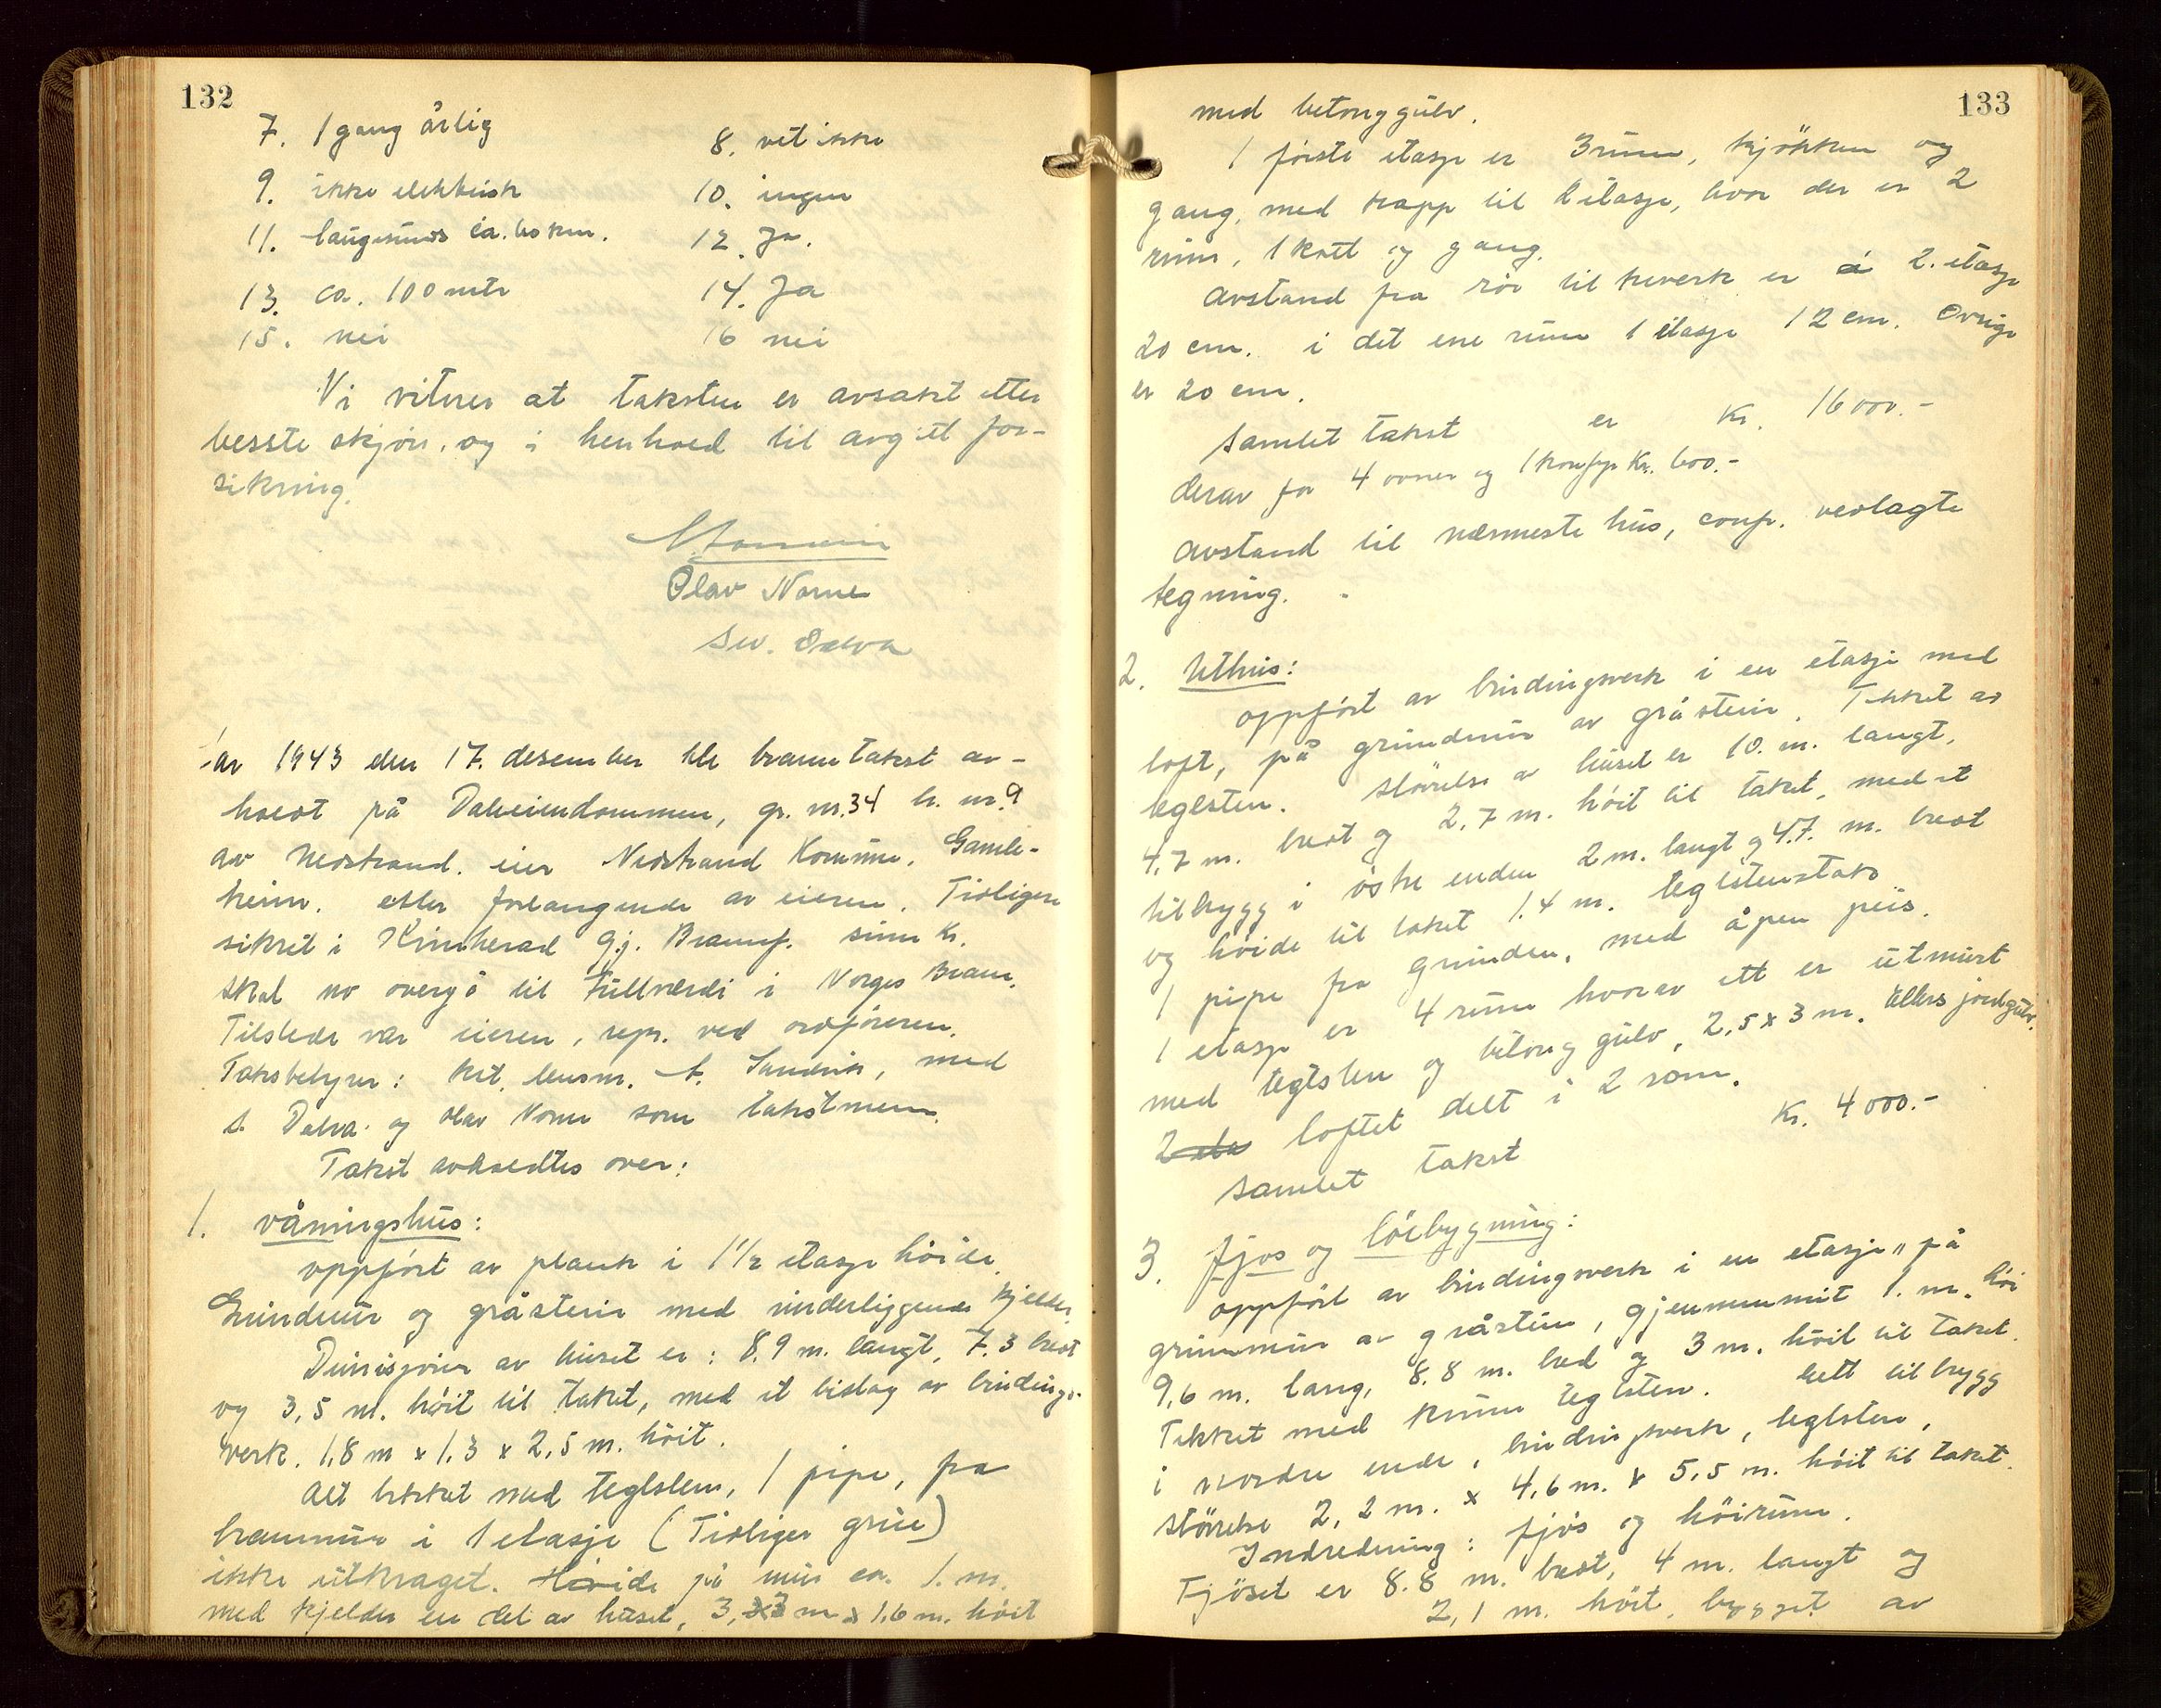 132
7. 1 gang årlig 8. vet ikke
9. ikke elektrisk 10. ingen
11. Haugesund ca. 40 km. 12. Ja.
13. ca. 100 mtr 14. Ja
15. nei 16 nei
Vi vitner at taksten er avsakt etter
besste skjön, og i henhold til avgitt for-
sikring.
Olav Norne
Sev. Dalva
År 1943 den 17. desember ble branntakst av-
holdt på Dalveiendommen, gr. nr. 34 br. nr. 9
av Nedstrand. eier Nedstrand Komune. Gamle-
heim. etter forlangende av eieren. Tidligere
sikret i Kvinherad Gj. Brannf. sum kr.
skal no overgå til Fullverdi i Norges Brann.
Tilstede var eieren, repr. ved ordföreren.
Takstbetyrer: kst. lensm. A. Sandvik, med
S. Dalva og Olav Norne som takstmenn.
Takst avholdtes over:
1. våningshus:
oppfört av plank i 1 1/2 etasje höide.
Grundmur og gråstein med underliggende kjelder.
Dimisjoner av huset er: 8.9 m. langt, 7.3 bredt
og 3,5 m. höit til taket, med et bislag av bindings-
verk. 1,8 m x 1,3 x 2,5 m. höit.
Alt tekket med teglsten, 1 pipe, fra
brannmur i 1 etasje (Tidliger grue)
ikke utkraget. Höide på mur ca. 1. m.
med kjelder en del av huset, 3,3 m x 1,6 m. höit
133
med betonggulv.
I förste etasje er 3 rum, kjökken og
gang, med trapp til 2 etasje, hvor der er 2
rum, 1 kott og gang.
Avstand fra rör til treverk er i 2. etasje
20 cm. i det ene rum 1 etasje 12 cm. Övrige
er 20 cm.
Samlet takst er Kr. 16000.-
derav for 4 ovner og 1 komfyr Kr. 600.-
Avstand til nærmeste hus, conf. vedlagte
tegning.
2. Uthus:
oppfört av bindingsverk i en etasje med
loft, på grundmur av gråstein. Tekket av
teglsten. Störrelse av huset er 10. m. langt,
4,7 m. bredt og 2,7 m. höit til taket, med et
tilbygg i östre enden 2 m. langt og 4.7. m. bredt
og höide til taket 1.4 m. teglstenstak
1 pipe fra grunden, med åpen peis.
1 etasje er 4 rum hvorav ett er utmurt
med teglsten og betong gulv, 2,5 x 3 m. Ellers jordgulv.
2 loftet delt i 2 rom.
Samlet takst Kr. 4000.-
3. fjos og löebygning:
oppfört av bindingsverk i en etasje på
grunnmur av gråstein, gjennemmit 1. m. höi
9,6 m. lang, 8.8 m. bred og 3 m. höit til taket.
Tekket med krum teglsten. Lett tilbygg
i nordre ende, bindingsverk, teglsten,
störrelse 2,2 m. x 4,6 m. x 5,5 m. höit til taket.
Indredning: fjös og höirum.
Fjöset er 8.8 m. bredt, 4 m. langt og
2,1 m. höit, bygget av